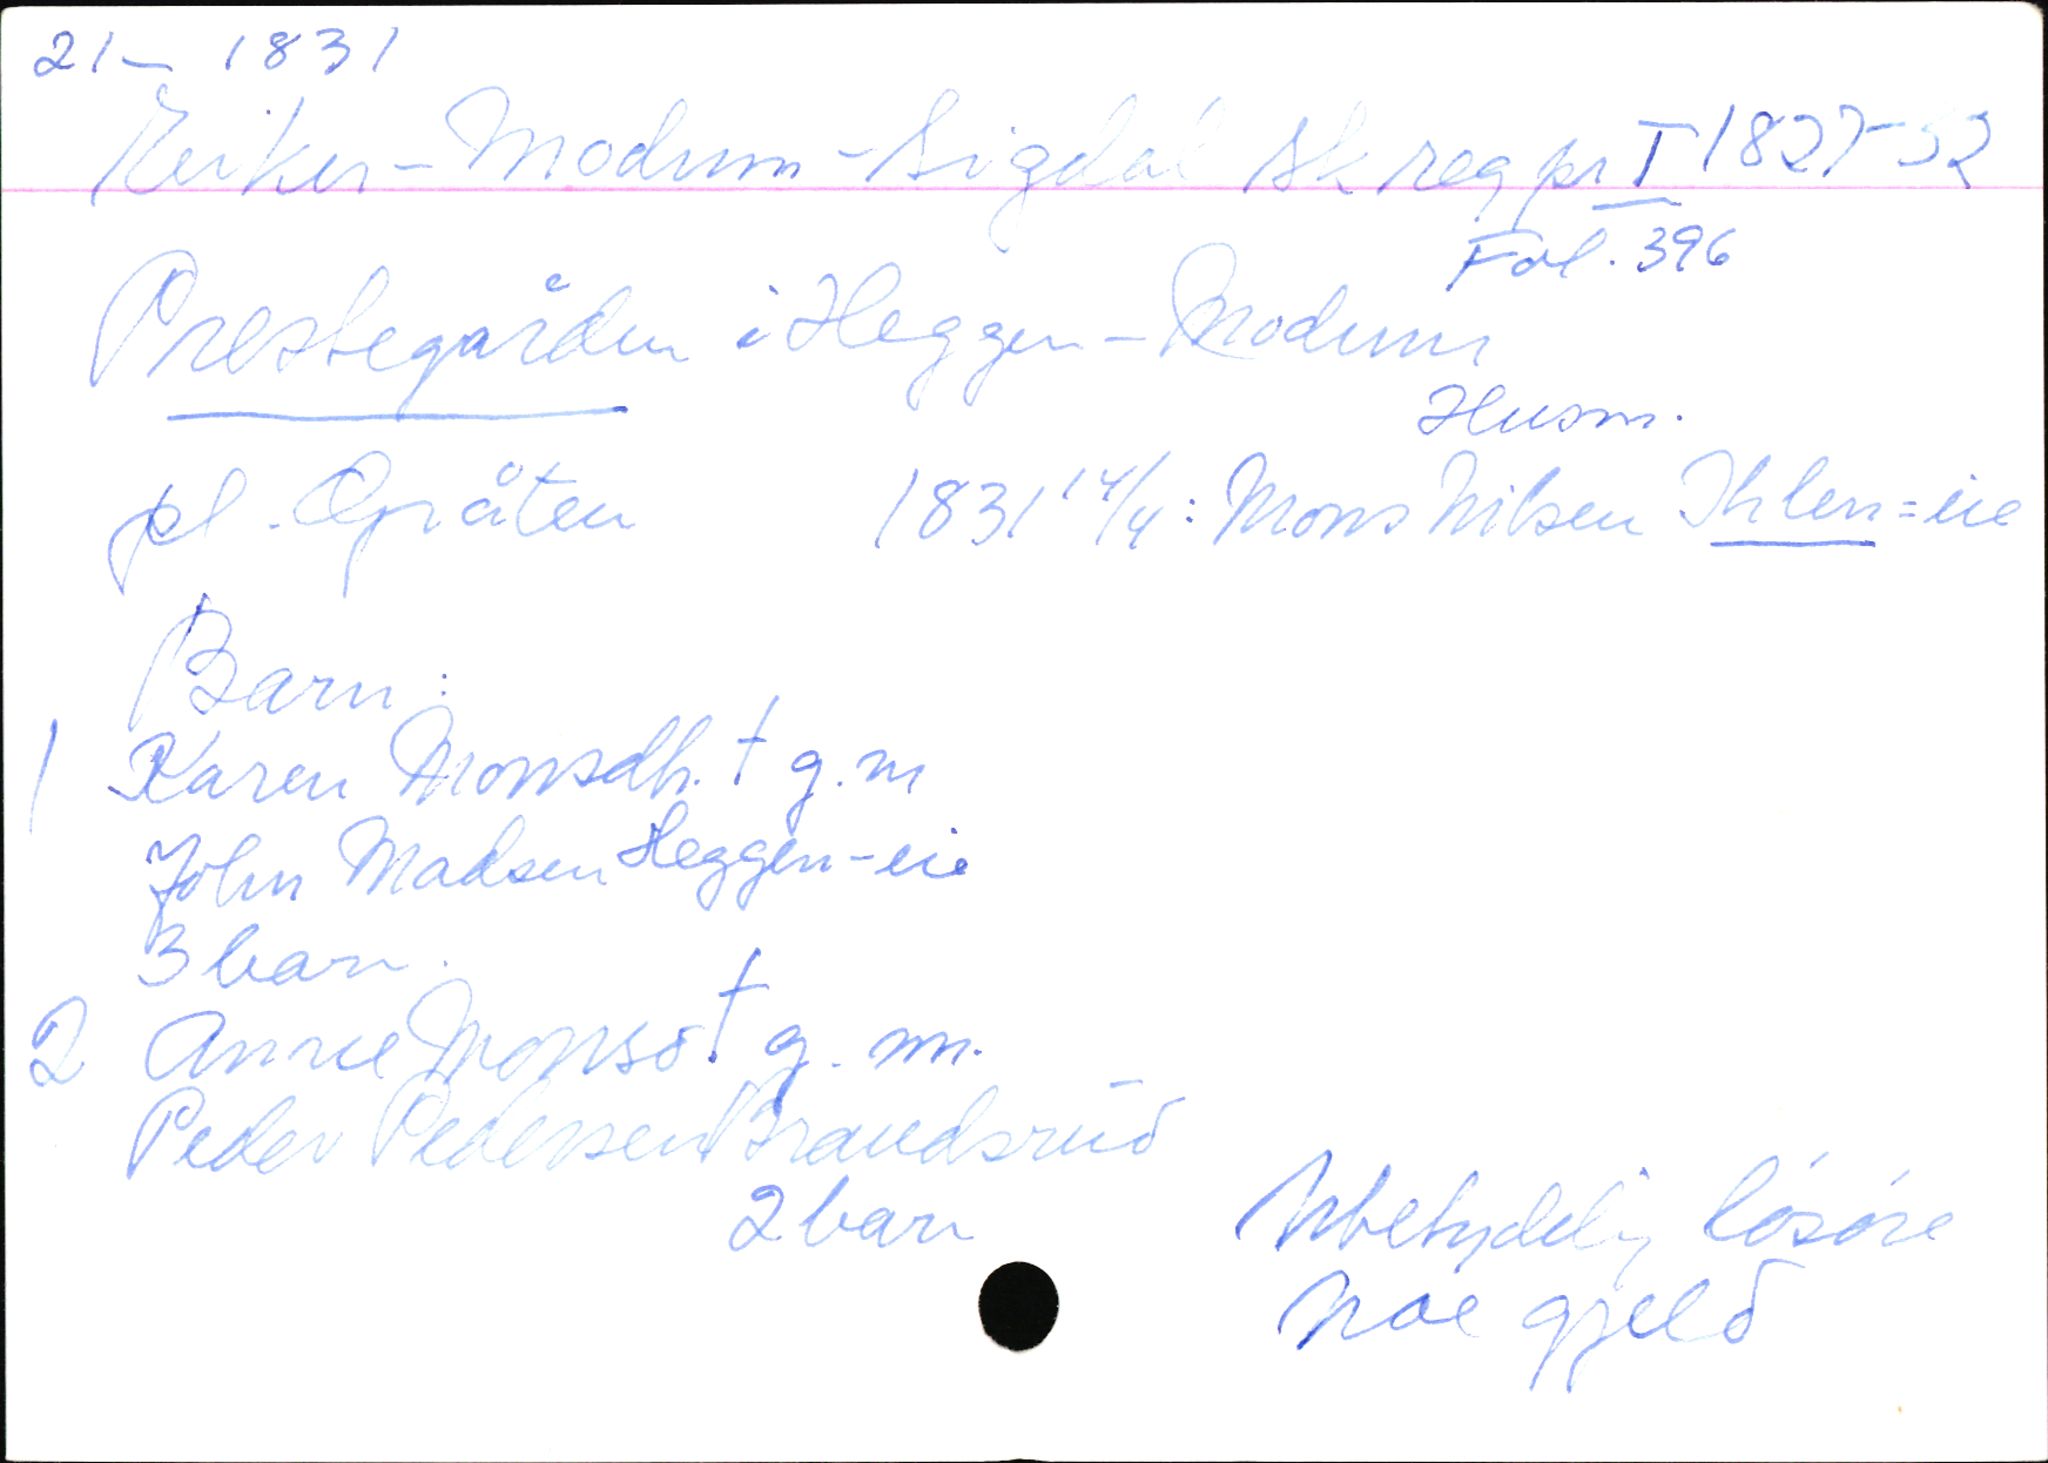 21- 1831
Eiker-Modum-Sigdal sk reg pr I 1827-52
Fol. 396
Prestegården i Heggen-Modum
Husm.
pl. Gråten 1831 14/4: Mons Nilsen Ihlen=eie
Barn:
1 Karen Monsdtr. † g.m
John Madsen Heggen-eie
3 barn.
2 Anne Monsd † g. m.
Peder Pedersen Brandsrud
2 barn
Ubetydelig løsøre
Noe gjeld